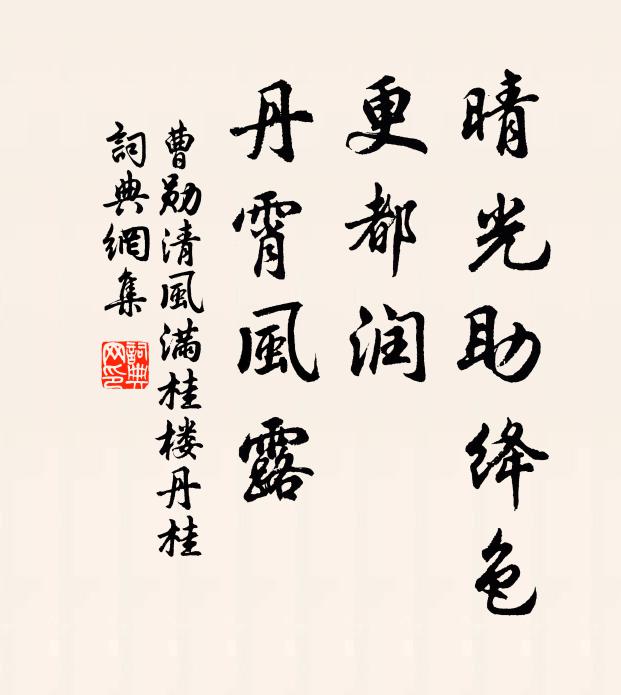 晴光助绛色
更都润
丹霄風露
曹勋清風滿桂楼丹桂
詞典網集
詞典网印